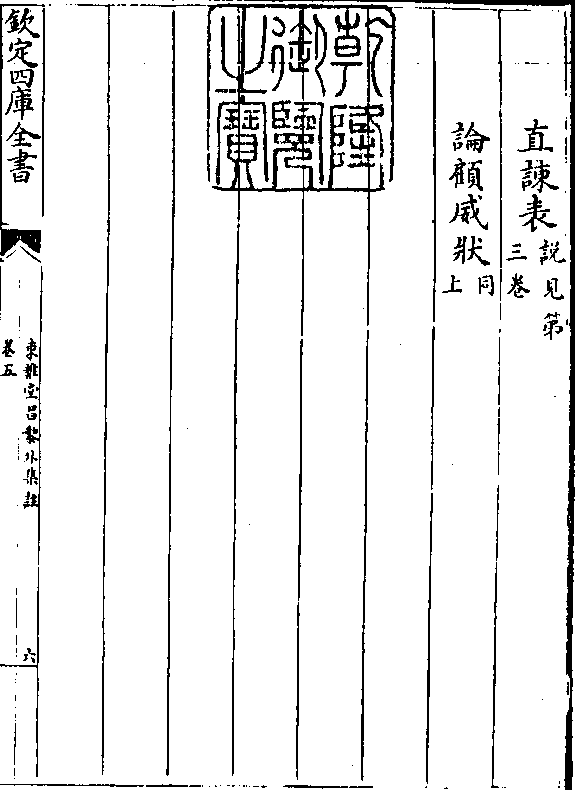 直諫表說見第三卷
論顧威狀同上
乾隆御覽之寶
欽定四庫全書
東雅堂昌黎外集註
卷五
六